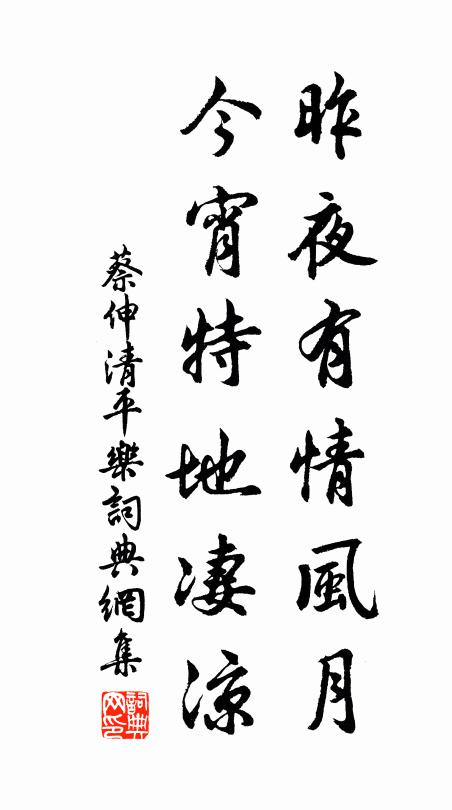 昨夜有情風月
今宵特地凄涼
蔡伸清平樂詞典網集
詞典網印